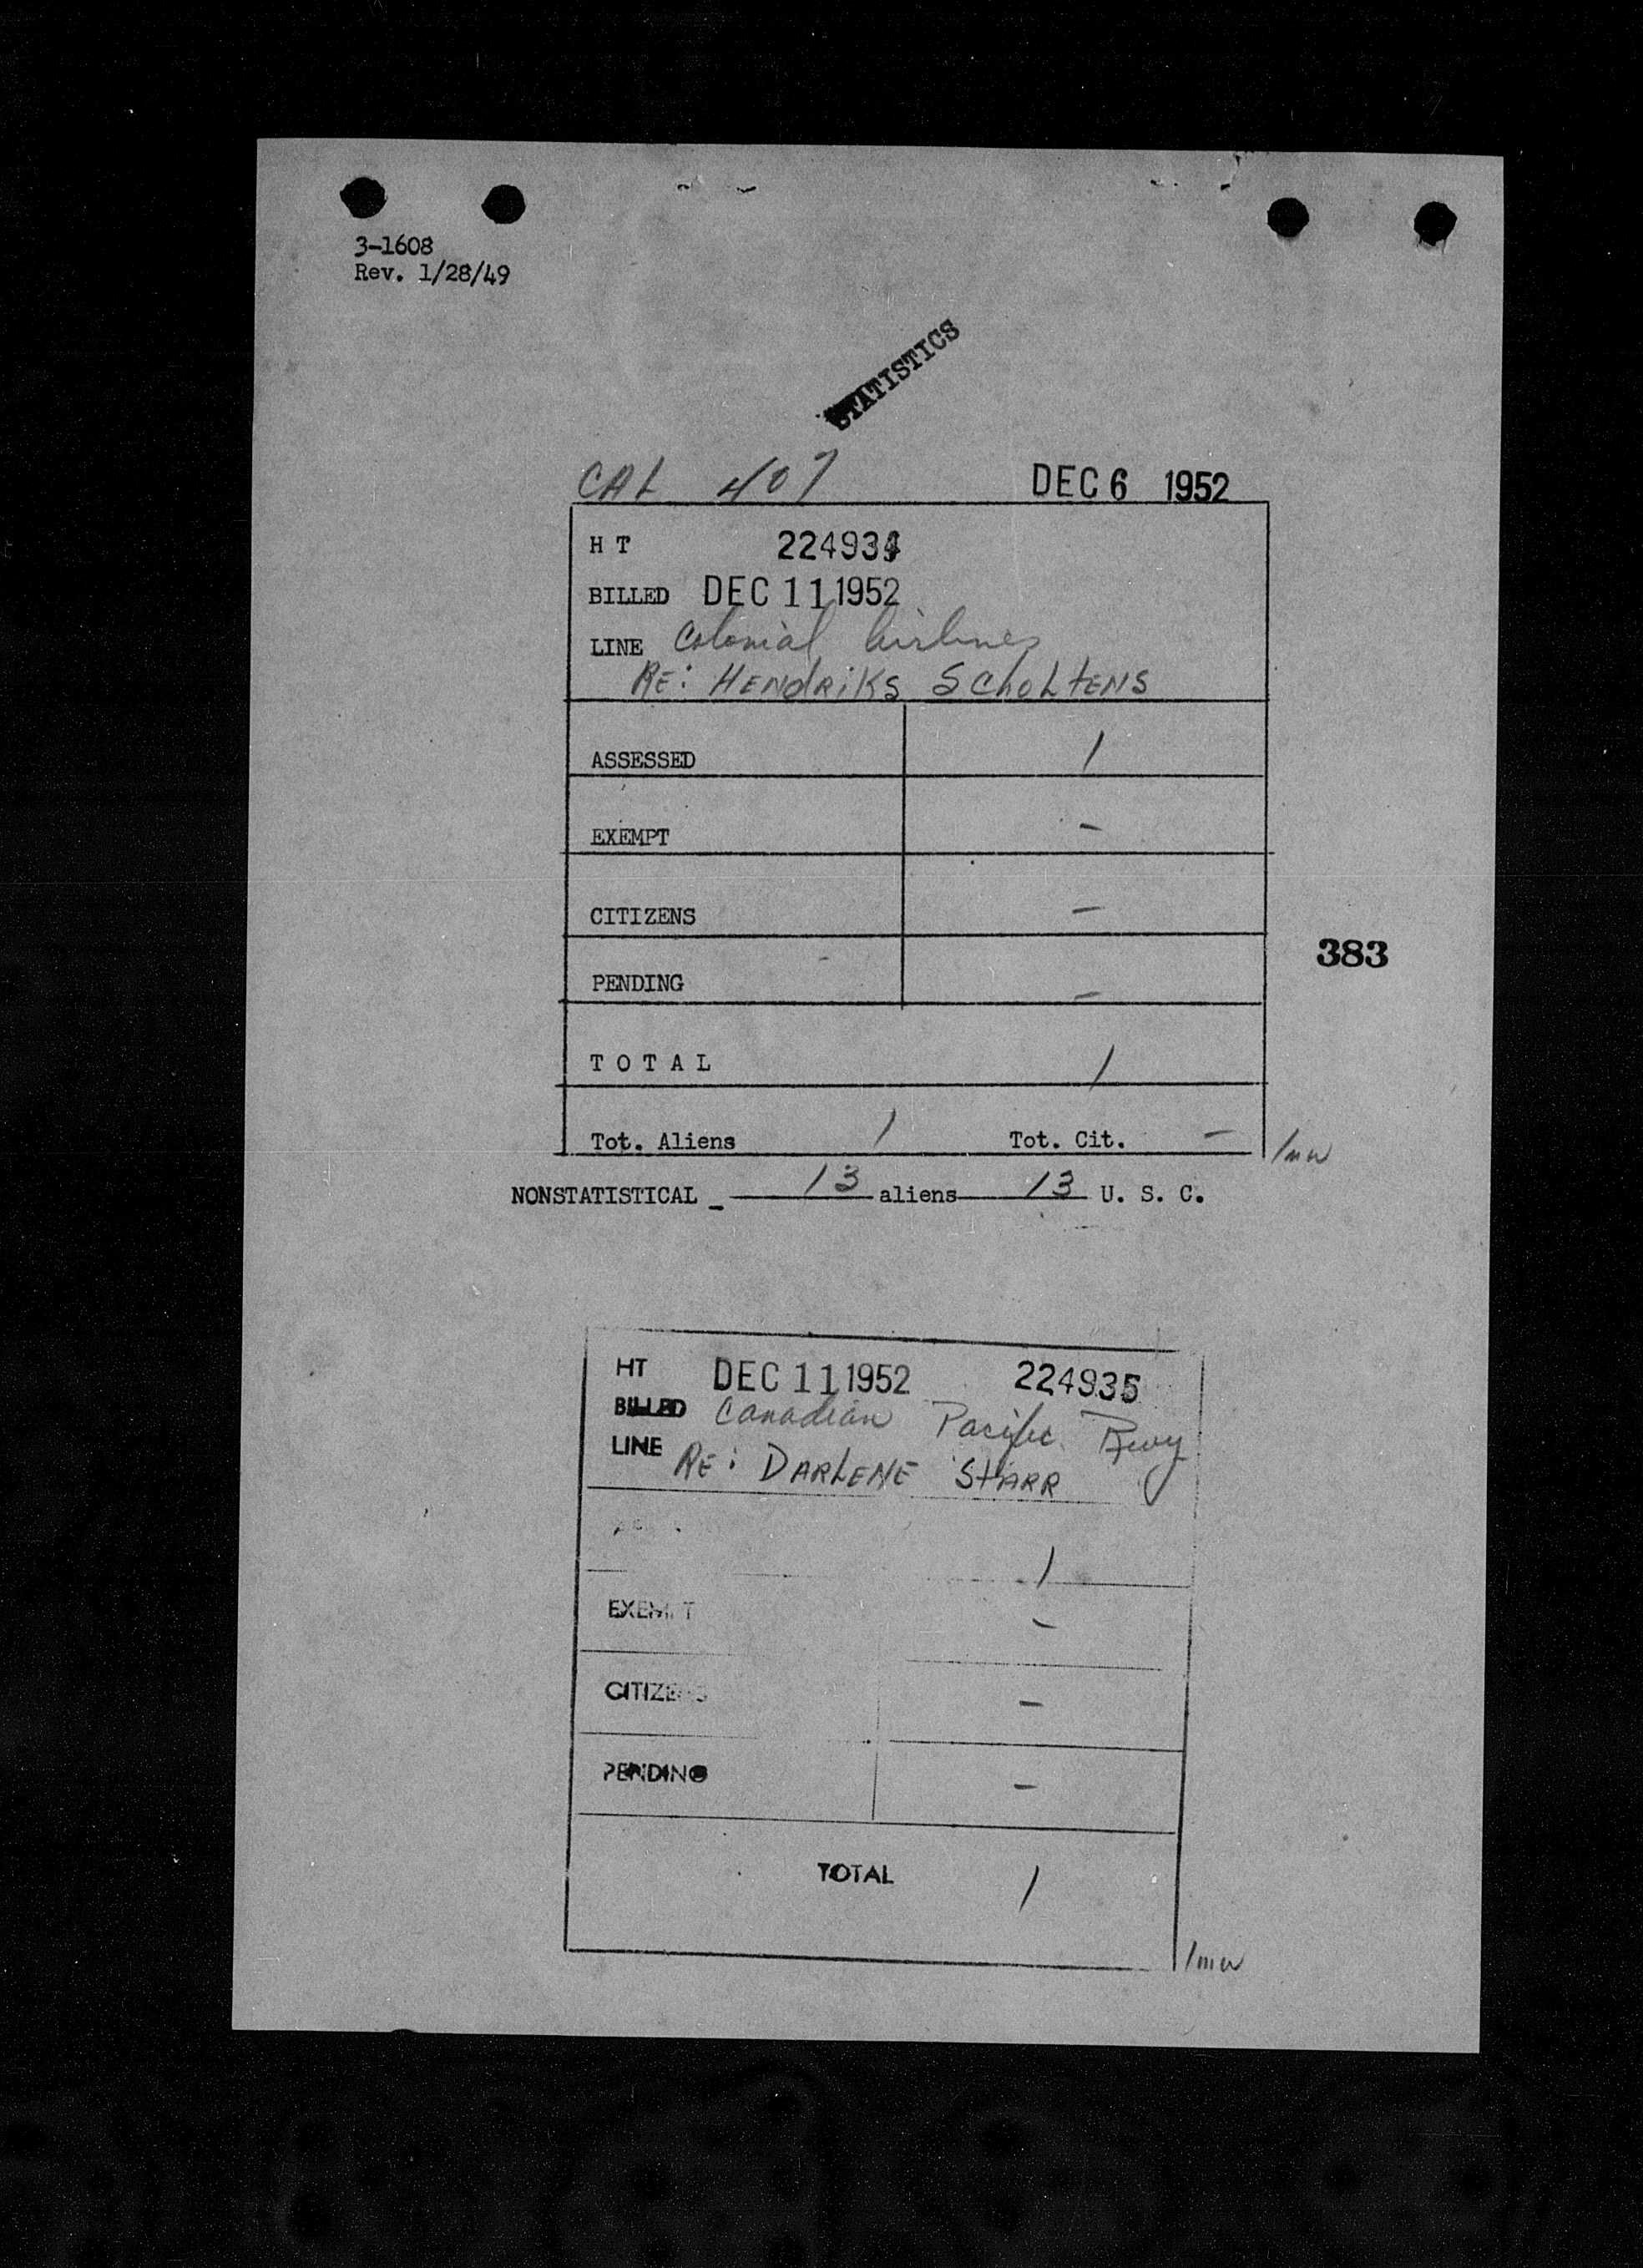 3-1608
Rev. 1/28/49
STATISTICS
CAL 407 DEC 6 1952
H T 224934
BILLED DEC 11 1952
LINE Colonial Airlines
RE: HENDRIKS SCHOLTENS
ASSESSED 1
EXEMPT -
CITIZENS -
383
PENDING -
T O T A L 1
Tot. Aliens 1 Tot. Cit. -
/mw
NONSTATISTICAL - 13 aliens 13 U. S. C.
HT DEC 11 1952 224935
BILLED Canadian Pacific Rwy
LINE RE: DARLENE STARR
1
EXEMPT -
CITIZENS -
PENDING -
TOTAL 1
/mw